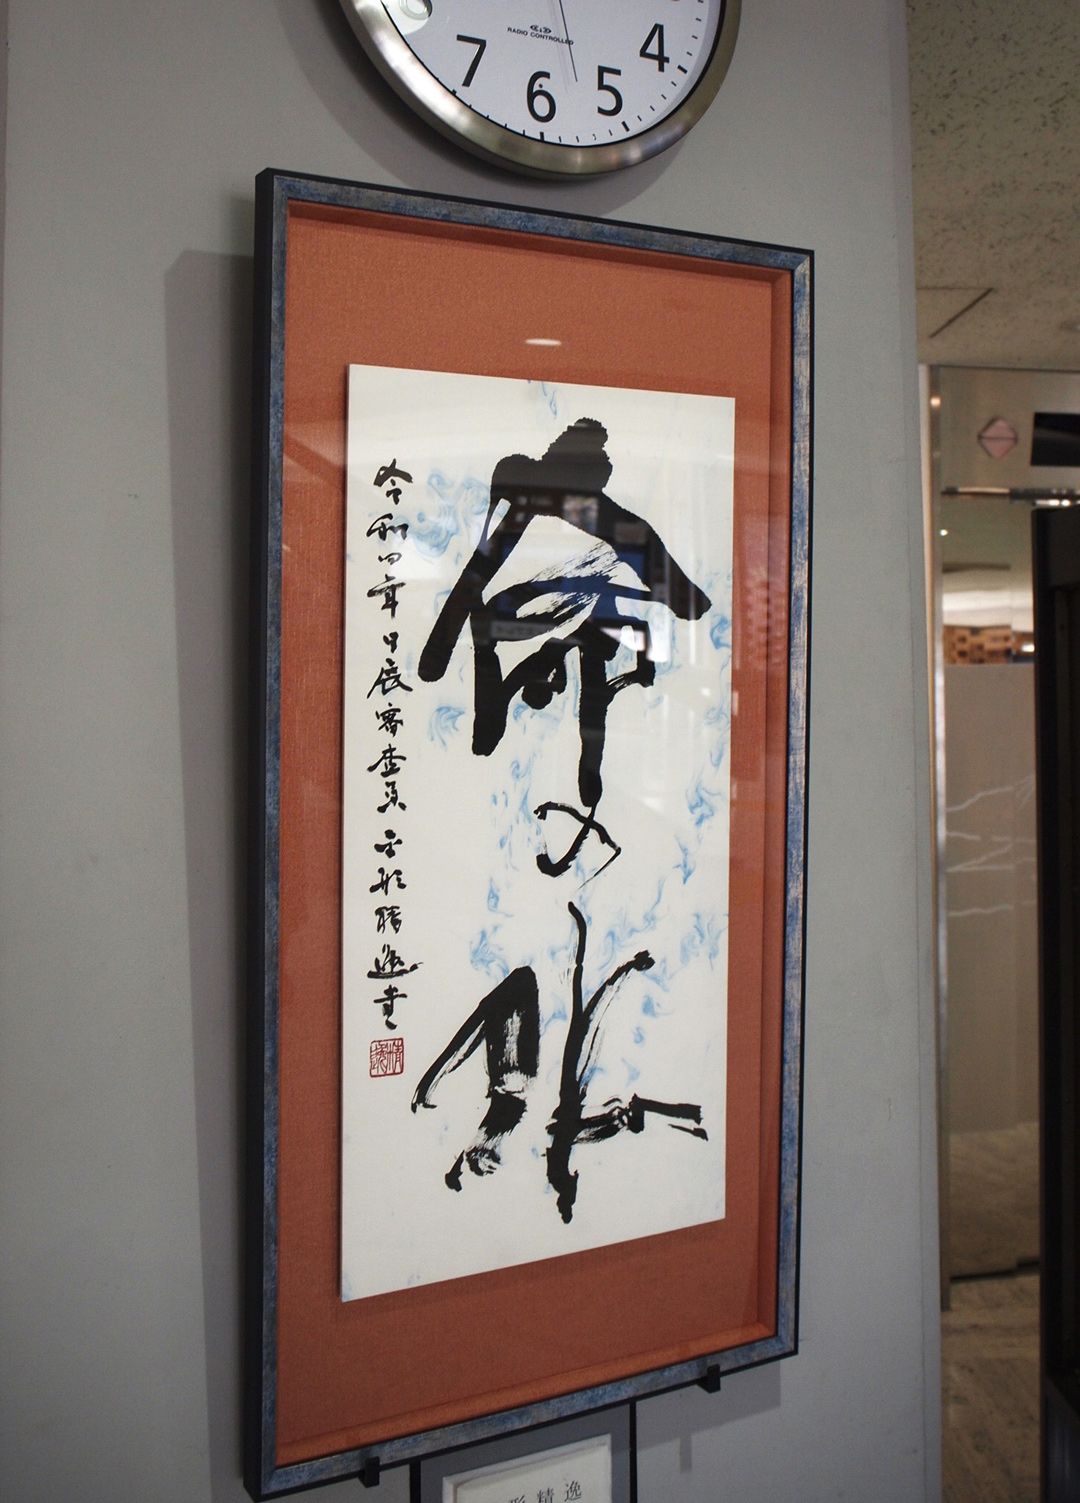 RADIO CONTROLLED
7 6 5 4
命の水
令和四年日展審査員 形精逸書
形精逸